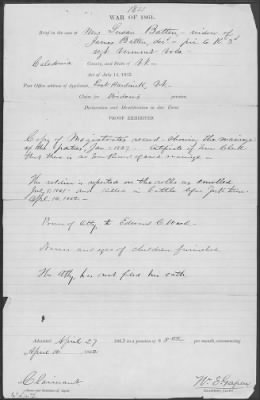 1821
WAR OF 1861.
Brief in the case of Mrs Susan Batten, widow of
James Batten, dec'd - priv. Co K 3d
Regt Vermont Vols -
Caledonia County, and State of Vt.
Act of July 14, 1862.
Post Office address of Applicant, East Hardwick, Vt.
Claim for Widow's pension.
Declaration and Identification in due Form.
PROOF EXHIBITED.
Copy of Magistrates record showing the marriage
of the parties, Jan 1847 - Certificate of Town Clerk
that there is no Town Record of said marriage.
The soldier is reported on the rolls as enrolled
July 1861 and killed in battle before
April 16, 1862.
Power of Atty to Edward C Ward.
Names and ages of children furnished.
The Atty has not filed his oath.
Admitted April 27 186 to a pension of $8.00 per month, commencing
April 16, 1862
Claimant
Wm E Gapen